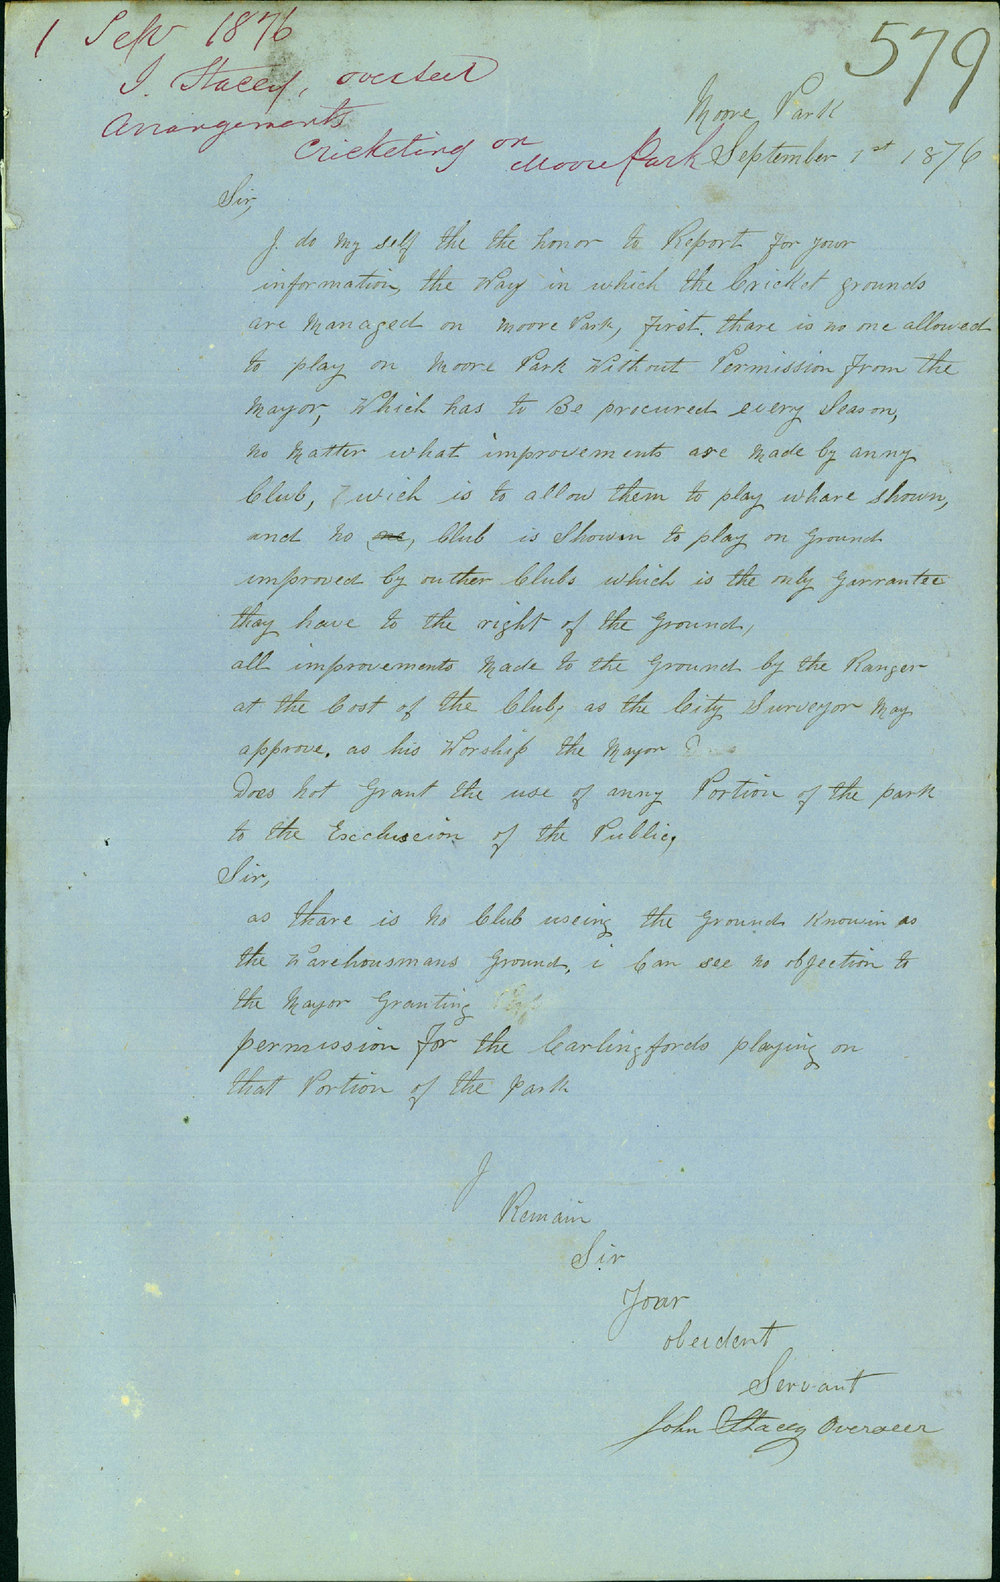 1 Sept 1876
J. Stacey, overseer
Arrangements
Cricketing on Moore Park
579
Moore Park
September 1st 1876
Sir,
I do my self the the honor to Report for your
information, the Way in which the Cricket grounds
are managed on Moore Park, first. thare is no one allowed
to play on Moore Park Without Permission from the
Mayor, Which has to Be procured every Season,
no matter what improvements are made by anny
Club, wich is to allow them to play whare shown,
and no one, Club is Showin to play on Ground
improved by outher Clubs which is the only Garrantee
thay have to the right of the Ground,
all improvements Made to the Ground by the Ranger
at the Cost of the Club, as the City Surveyor May
approve. as his Worship the Mayor
Does not Grant the use of anny Portion of the park
to the Excluscion of the Public,
Sir,
as thare is no Club useing the Ground Knowin as
the Warehousmans Ground, i Can see no objection to
the Mayor Granting
permission For the Carlingfords playing on
that Portion of the park
I
Remain
Sir
Your
obeident
Servant
John Stacey Overseer